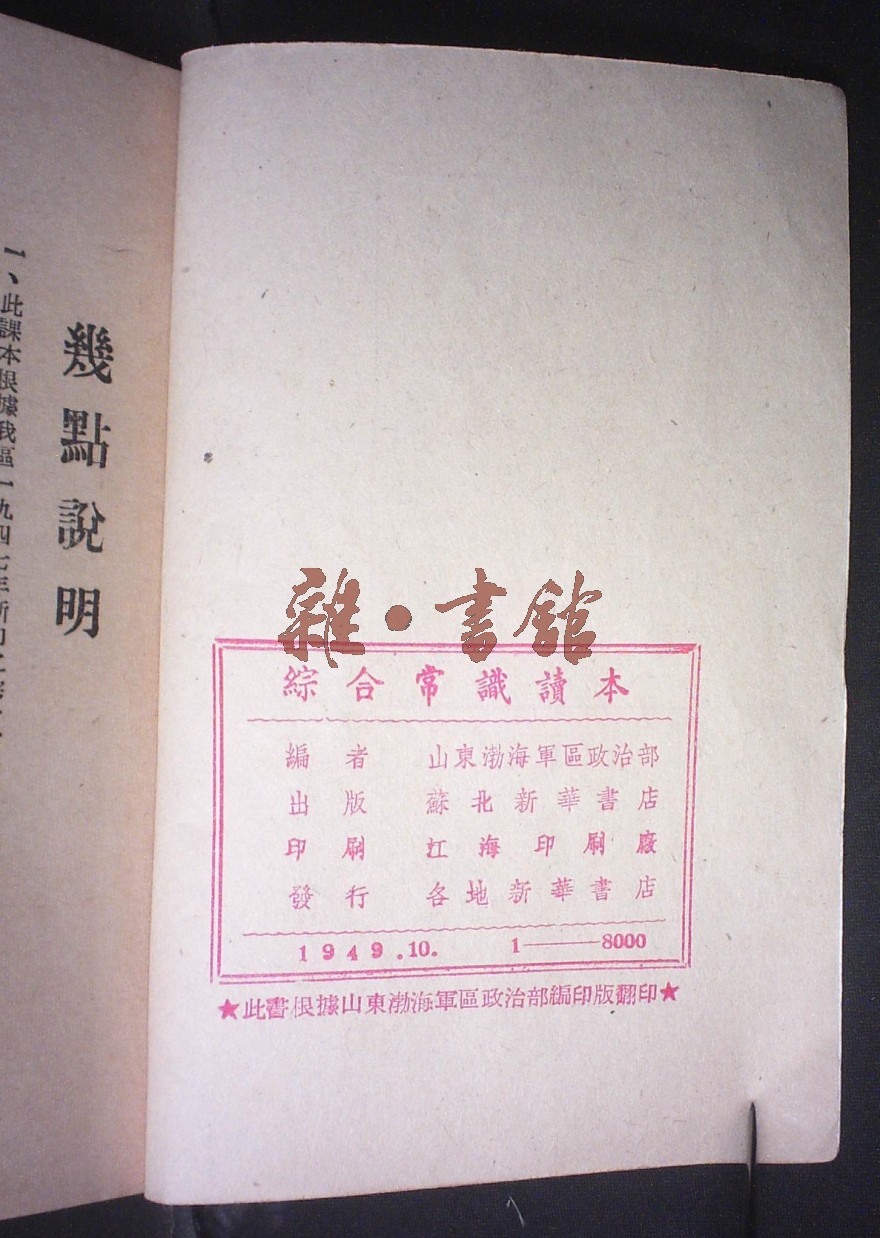 幾點說明
一、此課本根據我區一九四七年所印之
雜·書館
綜合常識讀本
編者 山東渤海軍區政治部
出版 蘇北新華書店
印刷 江海印刷廠
發行 各地新華書店
1949.10. 1——8000
★此書根據山東渤海軍區政治部編印版翻印★